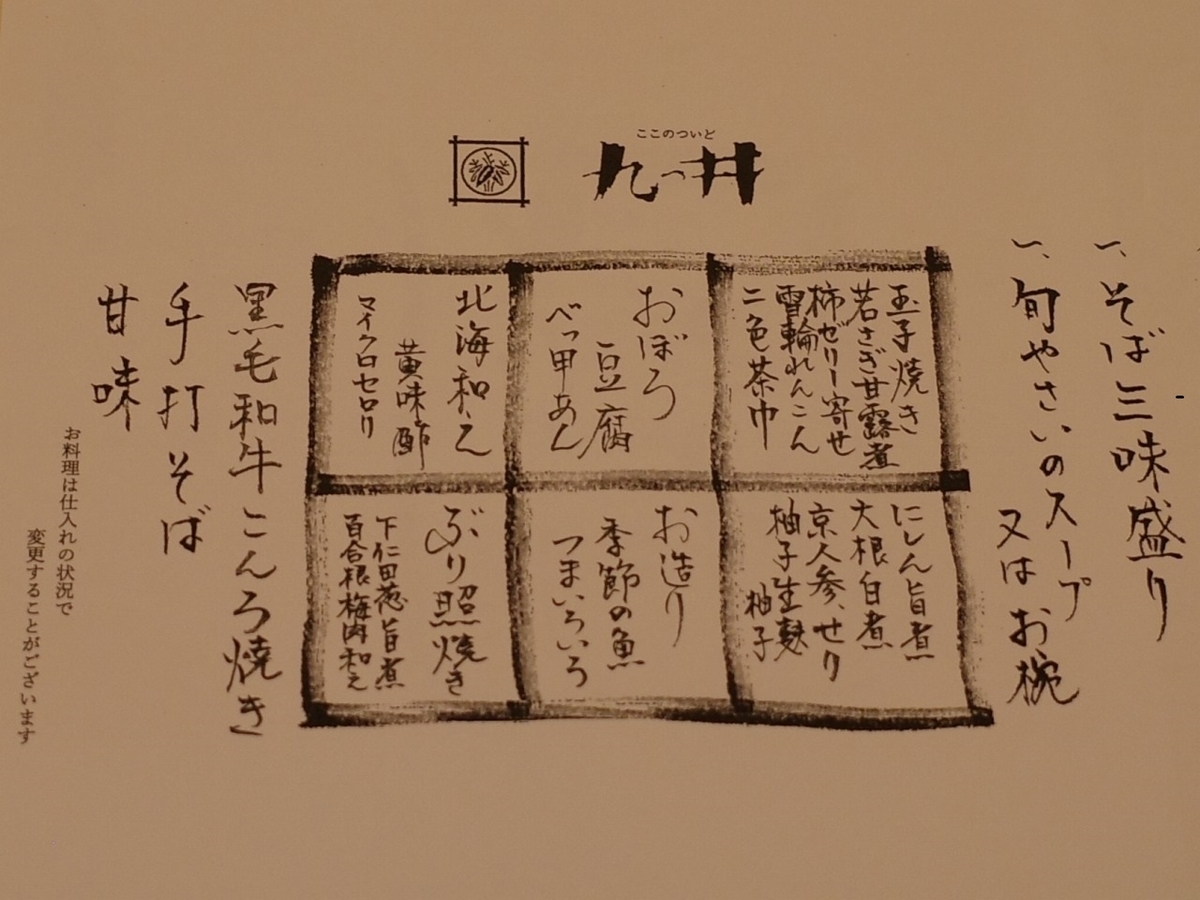 ここのついど
九つ井
一、そば三味盛り
一、旬やさいのスープ
又はお椀
玉子焼き
若さぎ甘露煮
柿ゼリー寄せ
雪輪れんこん
二色茶巾
おぼろ
豆腐
べっ甲あん
北海和え
黄味酢
マイクロセロリ
にしん旨煮
大根白煮
京人参、せり
柚子生麩
柚子
お造り
季節の魚
つまいろいろ
ぶり照焼き
下仁田葱旨煮
百合根梅肉和え
黒毛和牛こんろ焼き
手打そば
甘味
お料理は仕入れの状況で
変更することがございます